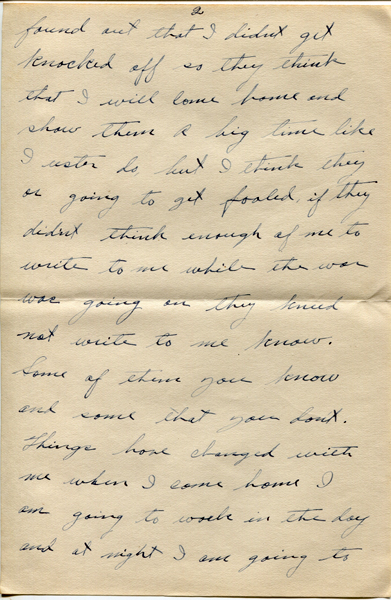 2
found out that I didnt get
knocked off so they think
that I will come home and
show them a big time like
I uster do, but I think they
or going to get fooled, if they
didnt think enough of me to
write to me while the war
was going on they kneed
not write to me know.
Some of them you know
and some that you dont.
Things have changed with
me when I come home I
am going to work in the day
and at night I am going to